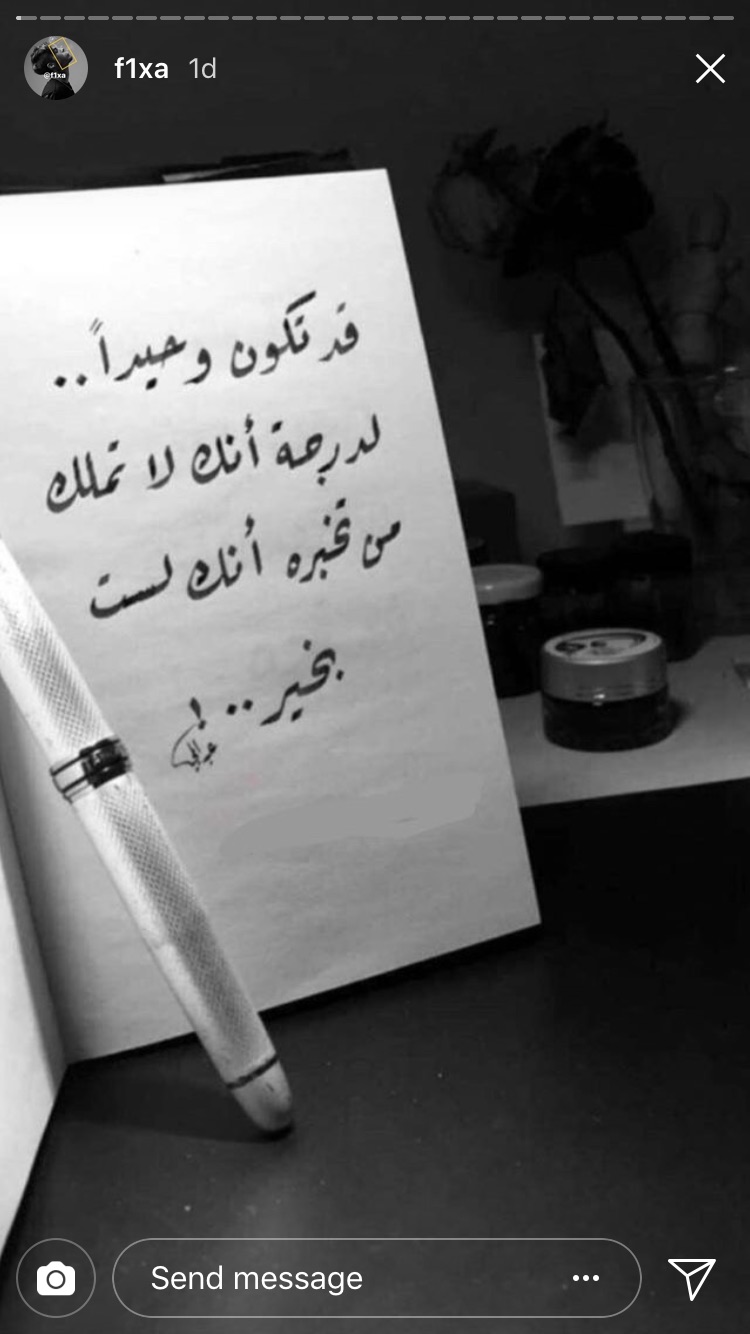 f1xa 1d
@f1xa
قد تكون وحيداً..
لدرجة أنك لا تملك
من تخبره أنك لست
بخير.. !
Send message